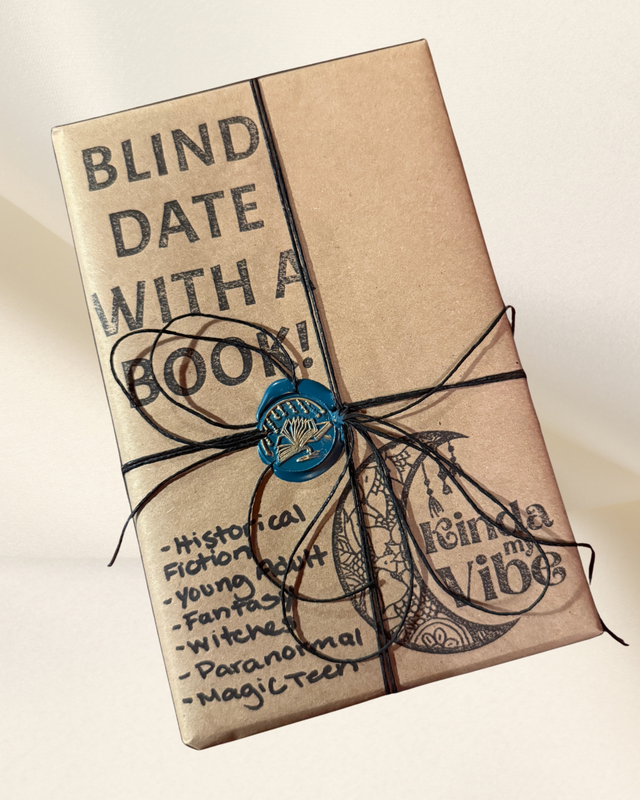 BLIND
DATE
WITH A
BOOK!
- Historical
Fiction
- Young Adult
- Fantasy
- Witches
- Paranormal
- Magic Teen
Kinda
my
Vibe